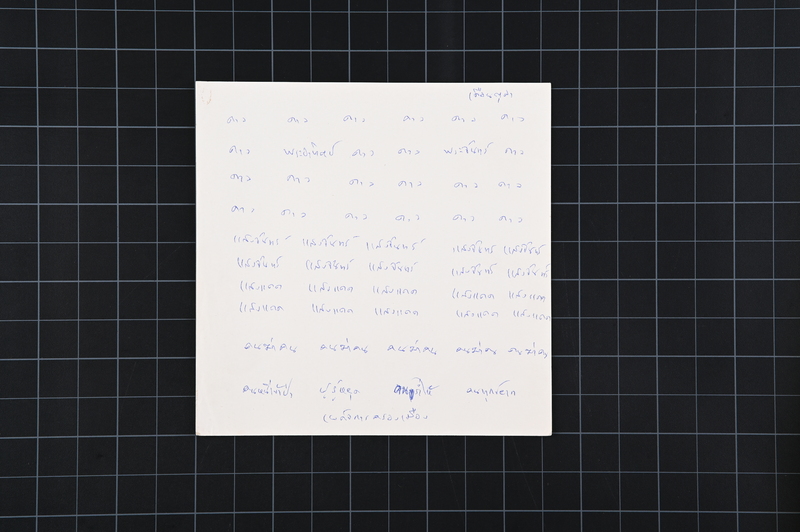 เดือนตุลา
ดาว ดาว ดาว ดาว ดาว ดาว
ดาว พระอาทิตย์ ดาว ดาว พระจันทร์ ดาว
ดาว ดาว ดาว ดาว ดาว ดาว
ดาว ดาว ดาว ดาว ดาว ดาว
แสงจันทร์ แสงจันทร์ แสงจันทร์ แสงจันทร์ แสงจันทร์
แสงจันทร์ แสงจันทร์ แสงจันทร์ แสงจันทร์ แสงจันทร์
แสงแดด แสงแดด แสงแดด แสงแดด แสงแดด
แสงแดด แสงแดด แสงแดด แสงแดด แสงแดด
คนฆ่าคน คนฆ่าคน คนฆ่าคน คนฆ่าคน คนฆ่าค
คนหนีเข้าป่า ผู้รู้หยุด คนร้องไห้ คนทุกข์ยาก
เผด็จการครองเมือง